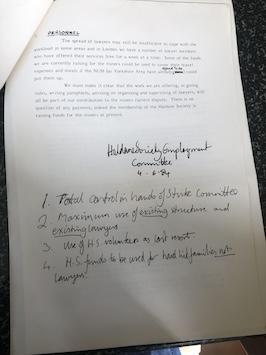 PERSONNEL
The spread of lawyers may still be insufficient to cope with the
workload in some areas and in London we have a number of lawyer members
who have offered their services free for a week at a time. Some of the funds
we are currently raising for the miners could be used to cover their travel
expenses and meals if the NUM (or Yorkshire Area have already) could
put them up.
We must make it clear that the work we are offering, in giving
talks, writing pamphlets, advising on organising and supervising of lawyers, will
all be part of our contribution to the miners current dispute. There is no
question of any payments, indeed the membership of the Haldane Society is
raising funds for the miners at present.
Haldane Society Employment
Committee
4-6-84
1. Total control in hands of Strike Committee
2. Maximum use of existing structure and
existing lawyers
3. Use of H.S. volunteers as last resort.
4. H.S. funds to be used for hard hit families not
lawyers.